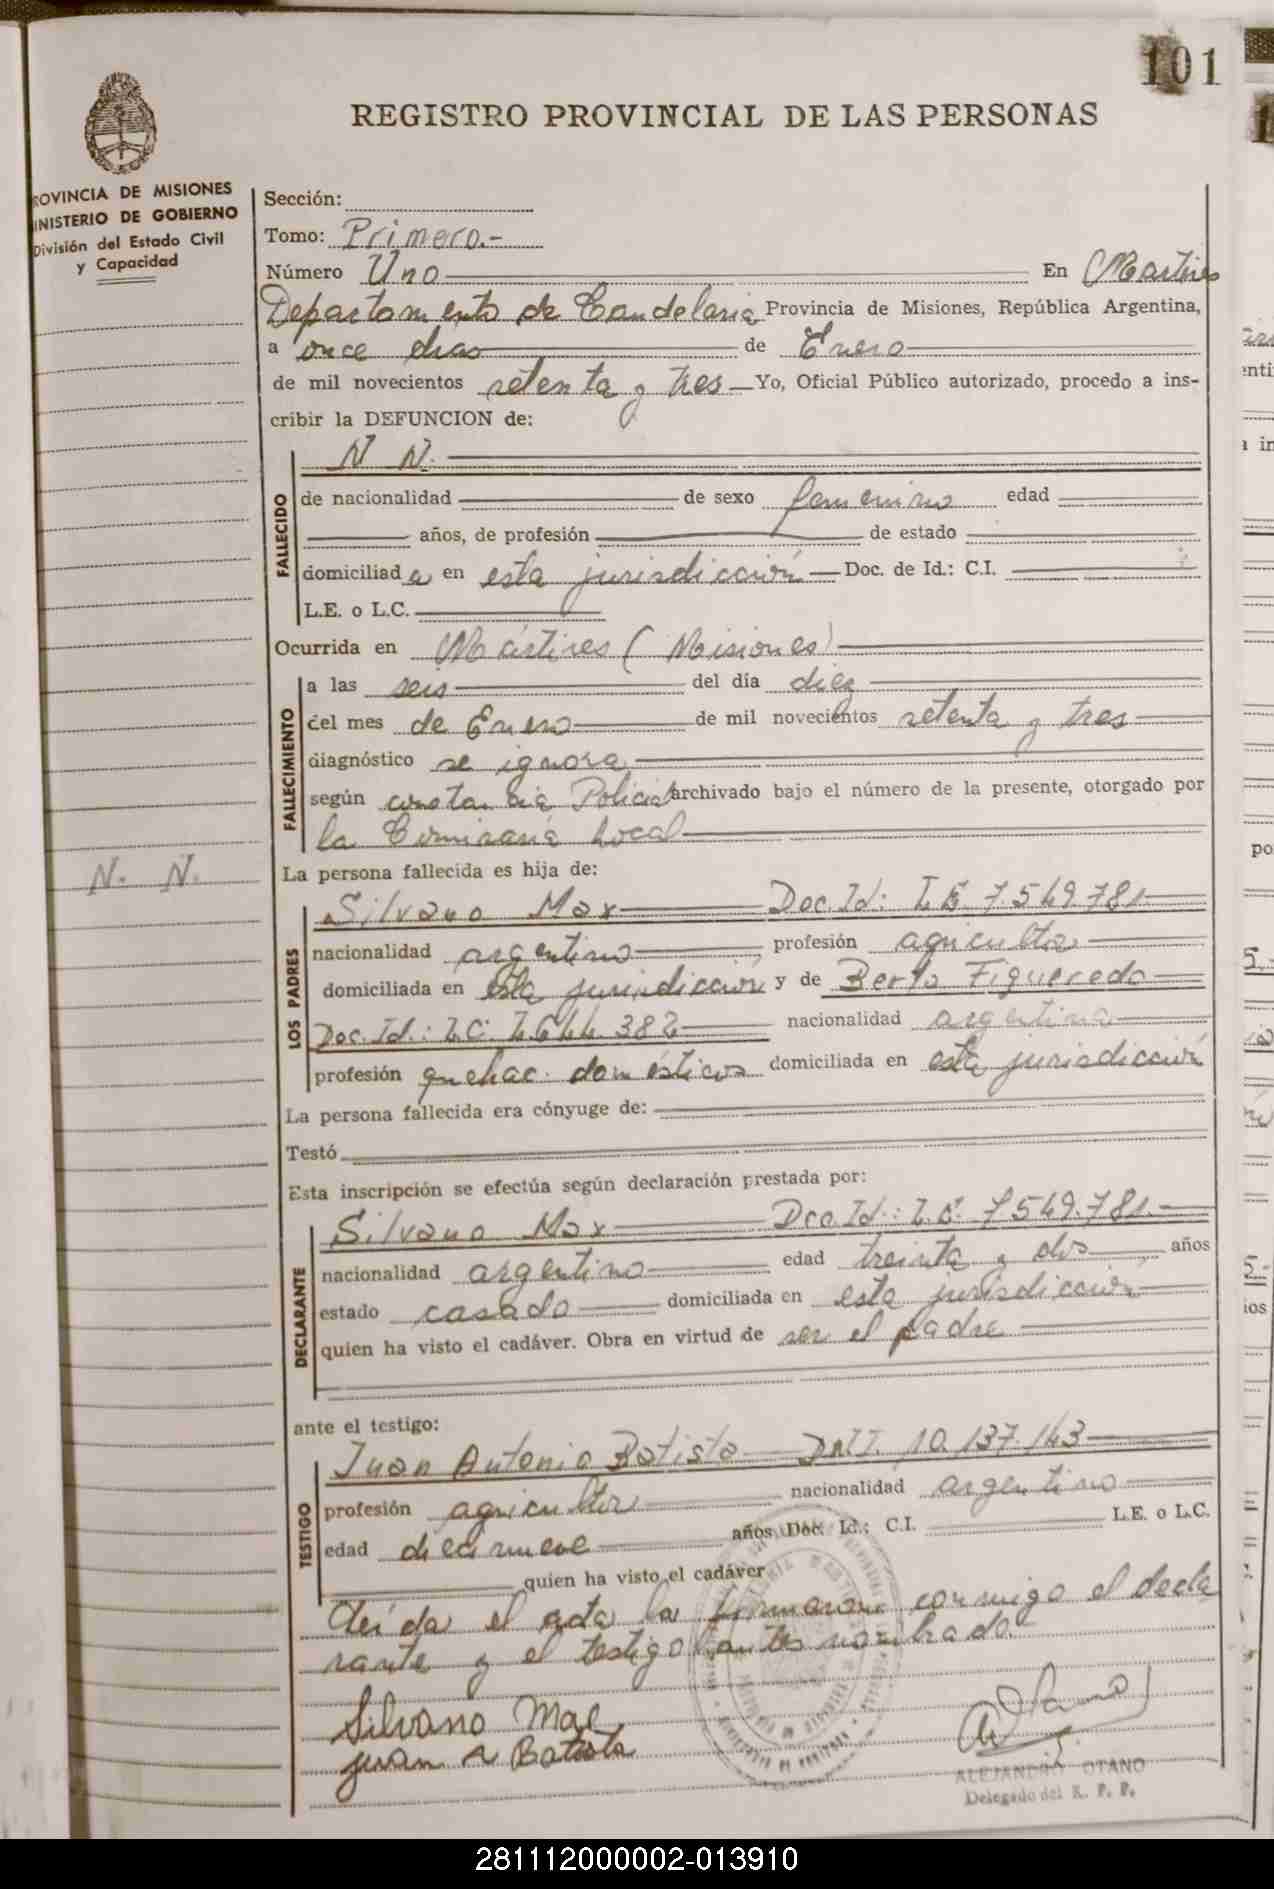 101
REGISTRO PROVINCIAL DE LAS PERSONAS
ROVINCIA DE MISIONES
INISTERIO DE GOBIERNO
División del Estado Civil
y Capacidad
Sección:
Tomo: Primero.-
Número Uno En Martires
Departamento de Candelaria Provincia de Misiones, República Argentina,
a once dias de Enero
de mil novecientos setenta y tres Yo, Oficial Público autorizado, procedo a ins-
cribir la DEFUNCION de:
N N.
FALLECIDO
de nacionalidad de sexo femenino edad
años, de profesión de estado
domiciliada en esta jurisdicción Doc. de Id.: C.I.
L.E. o L.C.
Ocurrida en Mártires (Misiones)
FALLECIMIENTO
a las seis del día diez
del mes de Enero de mil novecientos setenta y tres
diagnóstico se ignora
según constancia Policial archivado bajo el número de la presente, otorgado por
la Comisaria Local
N. N.
La persona fallecida es hija de:
LOS PADRES
Silvano Max Doc. Id: L.E. 7.549.781
nacionalidad argentino profesión agricultor
domiciliada en esta jurisdicción y de Berta Figueredo
Doc. Id.: L.C. 382 nacionalidad argentina
profesión quehac. domésticos domiciliada en esta jurisdicción
La persona fallecida era cónyuge de:
Testó
Esta inscripción se efectúa según declaración prestada por:
DECLARANTE
Silvano Max Doc. Id.: L.E. 7549.781.
nacionalidad argentino edad treinta y dos años
estado casado domiciliada en esta jurisdicción
quien ha visto el cadáver. Obra en virtud de ser el padre
ante el testigo:
TESTIGO
Juan Antonio Batista DNI. 10.137.143
profesión agricultor nacionalidad argentino
edad diecinueve años, Doc. Id.; C.I. L.E. o L.C.
quien ha visto el cadáver
Leída el acta la firmaron conmigo el decla
rante y el testigo antes nombrado
Silvano Max
Juan A Batista
ALEJANDRO OTANO
Delegado del R. P. P.
281112000002-013910